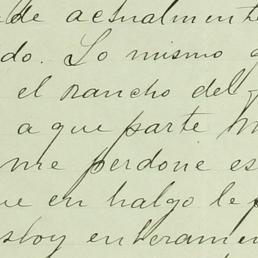 de actualmente
do. Lo mismo
el rancho del
a que parte
me perdone es
ue en halgo le
stoy enteramen